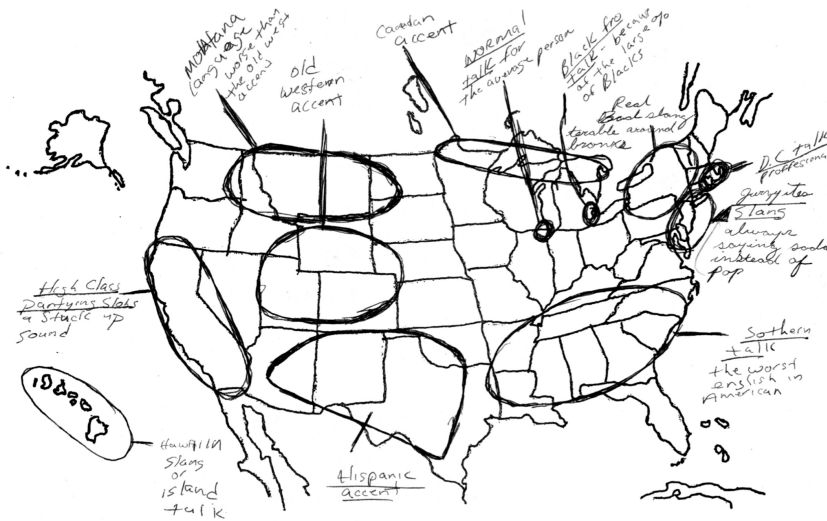 Montana
language
worse than
the old west
accent
old
western
accent
Canadan
accent
NORMAL
talk for
the average person
Black fro
talk - becaus
of the large %
of Blacks
Real
Bad slang
terable around
bronks
D.C. talk
proffesional
Slang
always
saying soda
instead of
pop
High Class
Partying Slobs
a Stuck up
Sound
Sothern
talk
the worst
english in
American
Hawaiin
Slang
or
island
talk
Hispanic
accent